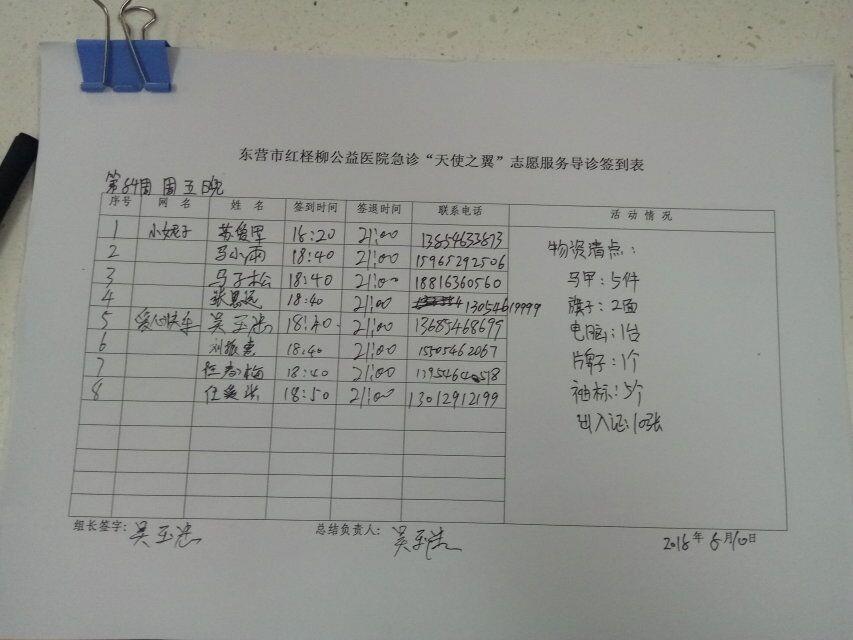 东营市红柽柳公益医院急诊“天使之翼”志愿服务导诊签到表
第64周 周五晚
序号 网名 姓名 签到时间 签退时间 联系电话 活动情况
1 小妮子 苏爱军 18:20 21:00 13854633873
2 马小雨 18:40 21:00 15965292506
3 马子松 18:40 21:00 18816360560
4 张思远 18:40 21:00 13054619999
5 爱心快车 吴玉忠 18:40 21:00 13685468699
6 18:40 21:00 15505462067
7 任春梅 18:40 21:00
8 18:50 21:00 13012912199
物资清点：
马甲：5件
旗子：2面
电脑：1台
牌子：1个
袖标：5个
出入证：10张
组长签字：吴玉忠 总结负责人：吴玉忠
2018年8月10日